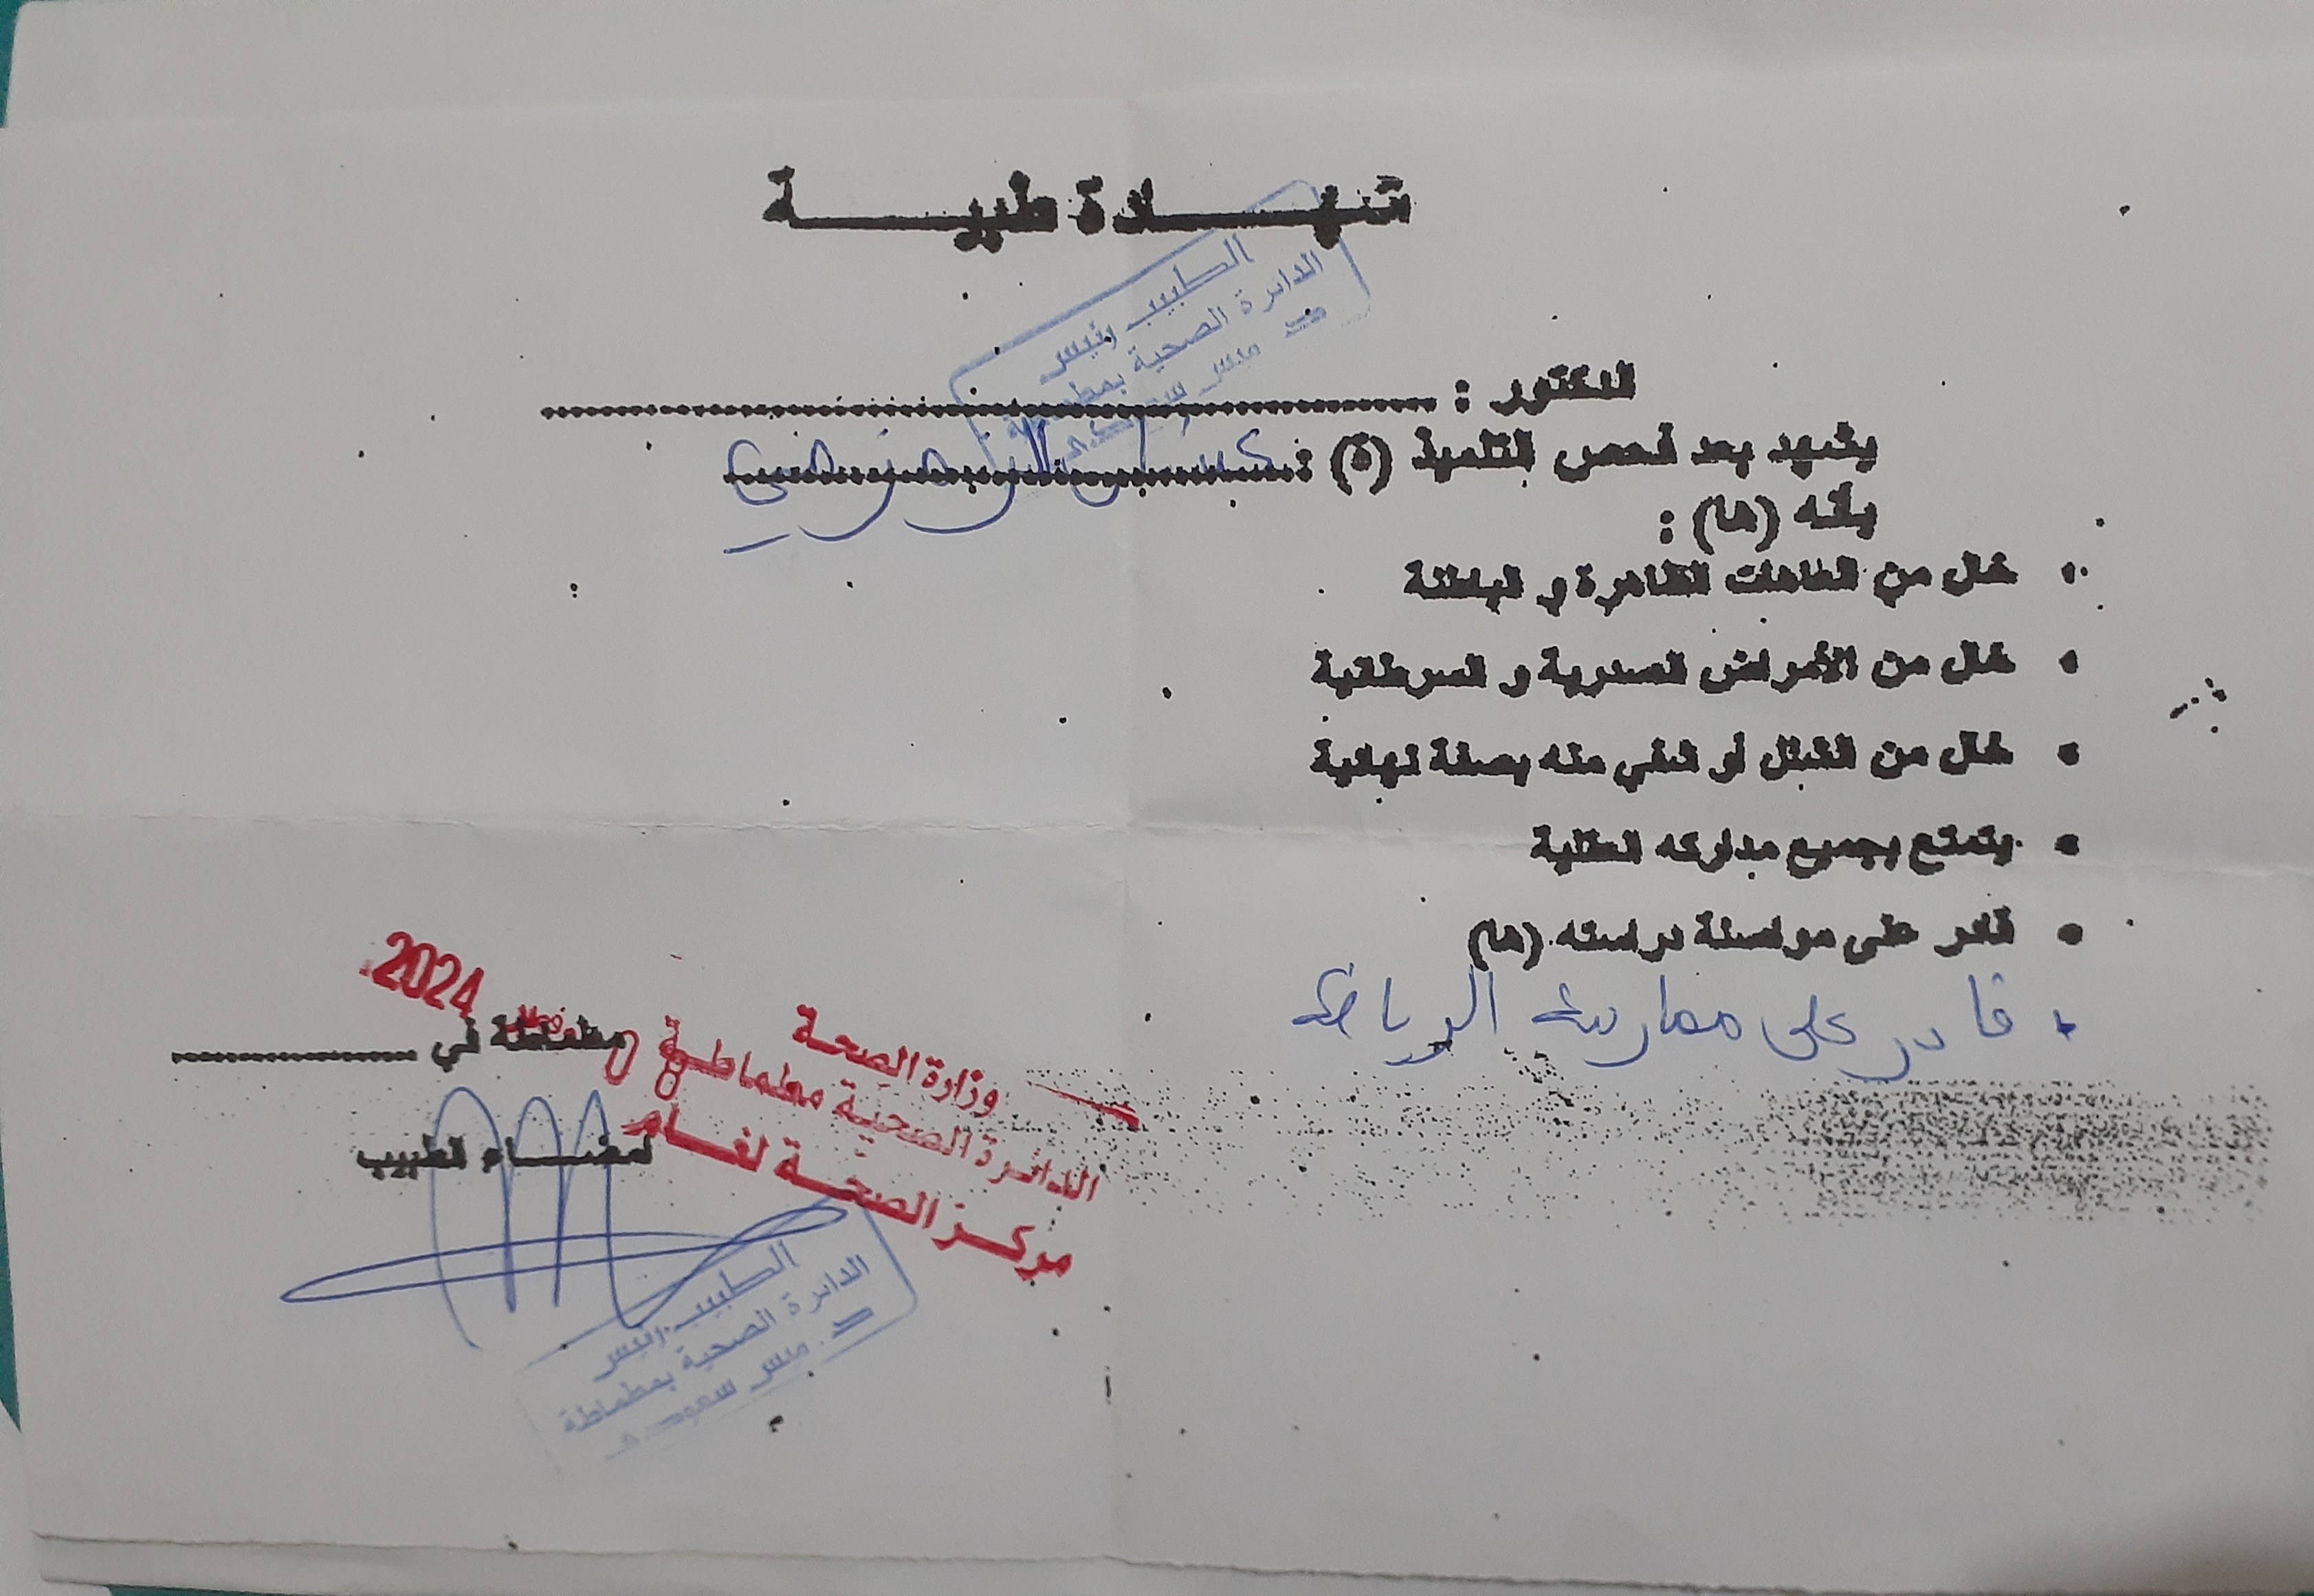 شهادة طبية
الطبيب رئيس
الدائرة الصحية بمطماطة
الدكتور :
يشهد بعد فحص التلميذ (ة) :
بأنه (ها) :
• خال من العاهات الظاهرة و الباطنة
• خال من الأمراض الصدرية و السرطانية
• خال من السل أو شفي منه بصفة نهائية
• يتمتع بجميع مداركه العقلية
• قادر على مواصلة دراسته (ها)
• قادر على ممارسة الرياضة
مطماطة في
2024
وزارة الصحة
الدائرة الصحية مطماطة
مركز الصحة
إمضاء الطبيب
الطبيب رئيس
الدائرة الصحية بمطماطة